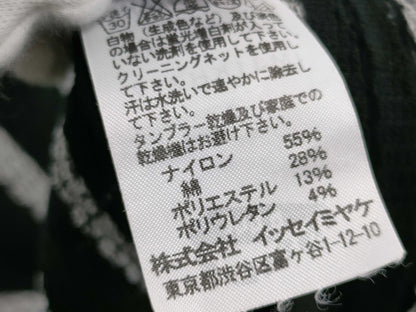 30
白物（生成色など）及び淡色
の場合は蛍光増白剤が入って
いない洗剤を使用して下さい。
クリーニングネットを使用し
て下さい。
汗は水洗いで速やかに除去し
て下さい。
タンブラー乾燥及び家庭での
乾燥機はお避け下さい。
ナイロン 55%
綿 28%
ポリエステル 13%
ポリウレタン 4%
株式会社 イッセイミヤケ
東京都渋谷区富ヶ谷1-12-10